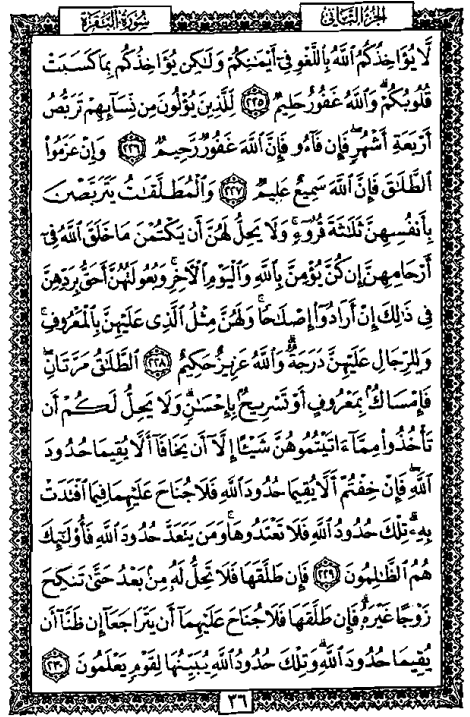 سُورَةُ البَقَرَةِ الجُزْءُ الثَّانِي
لَّا يُؤَاخِذُكُمُ ٱللَّهُ بِٱللَّغْوِ فِىٓ أَيْمَـٰنِكُمْ وَلَـٰكِن يُؤَاخِذُكُم بِمَا كَسَبَتْ
قُلُوبُكُمْ ۗ وَٱللَّهُ غَفُورٌ حَلِيمٌ ٢٢٥ لِّلَّذِينَ يُؤْلُونَ مِن نِّسَآئِهِمْ تَرَبُّصُ
أَرْبَعَةِ أَشْهُرٍ ۖ فَإِن فَآءُو فَإِنَّ ٱللَّهَ غَفُورٌ رَّحِيمٌ ٢٢٦ وَإِنْ عَزَمُوا۟
ٱلطَّلَـٰقَ فَإِنَّ ٱللَّهَ سَمِيعٌ عَلِيمٌ ٢٢٧ وَٱلْمُطَلَّقَـٰتُ يَتَرَبَّصْنَ
بِأَنفُسِهِنَّ ثَلَـٰثَةَ قُرُوٓءٍ ۚ وَلَا يَحِلُّ لَهُنَّ أَن يَكْتُمْنَ مَا خَلَقَ ٱللَّهُ فِىٓ
أَرْحَامِهِنَّ إِن كُنَّ يُؤْمِنَّ بِٱللَّهِ وَٱلْيَوْمِ ٱلْـَٔاخِرِ ۚ وَبُعُولَتُهُنَّ أَحَقُّ بِرَدِّهِنَّ
فِى ذَٰلِكَ إِنْ أَرَادُوٓا۟ إِصْلَـٰحًا ۚ وَلَهُنَّ مِثْلُ ٱلَّذِى عَلَيْهِنَّ بِٱلْمَعْرُوفِ ۚ
وَلِلرِّجَالِ عَلَيْهِنَّ دَرَجَةٌ ۗ وَٱللَّهُ عَزِيزٌ حَكِيمٌ ٢٢٨ ٱلطَّلَـٰقُ مَرَّتَانِ ۖ
فَإِمْسَاكٌۢ بِمَعْرُوفٍ أَوْ تَسْرِيحٌۢ بِإِحْسَـٰنٍ ۗ وَلَا يَحِلُّ لَكُمْ أَن
تَأْخُذُوا۟ مِمَّآ ءَاتَيْتُمُوهُنَّ شَيْـًٔا إِلَّآ أَن يَخَافَآ أَلَّا يُقِيمَا حُدُودَ
ٱللَّهِ ۖ فَإِنْ خِفْتُمْ أَلَّا يُقِيمَا حُدُودَ ٱللَّهِ فَلَا جُنَاحَ عَلَيْهِمَا فِيمَا ٱفْتَدَتْ
بِهِۦ ۗ تِلْكَ حُدُودُ ٱللَّهِ فَلَا تَعْتَدُوهَا ۚ وَمَن يَتَعَدَّ حُدُودَ ٱللَّهِ فَأُو۟لَـٰٓئِكَ
هُمُ ٱلظَّـٰلِمُونَ ٢٢٩ فَإِن طَلَّقَهَا فَلَا تَحِلُّ لَهُۥ مِنۢ بَعْدُ حَتَّىٰ تَنكِحَ
زَوْجًا غَيْرَهُۥ ۗ فَإِن طَلَّقَهَا فَلَا جُنَاحَ عَلَيْهِمَآ أَن يَتَرَاجَعَآ إِن ظَنَّآ أَن
يُقِيمَا حُدُودَ ٱللَّهِ ۗ وَتِلْكَ حُدُودُ ٱللَّهِ يُبَيِّنُهَا لِقَوْمٍ يَعْلَمُونَ ٢٣٠
٣٦